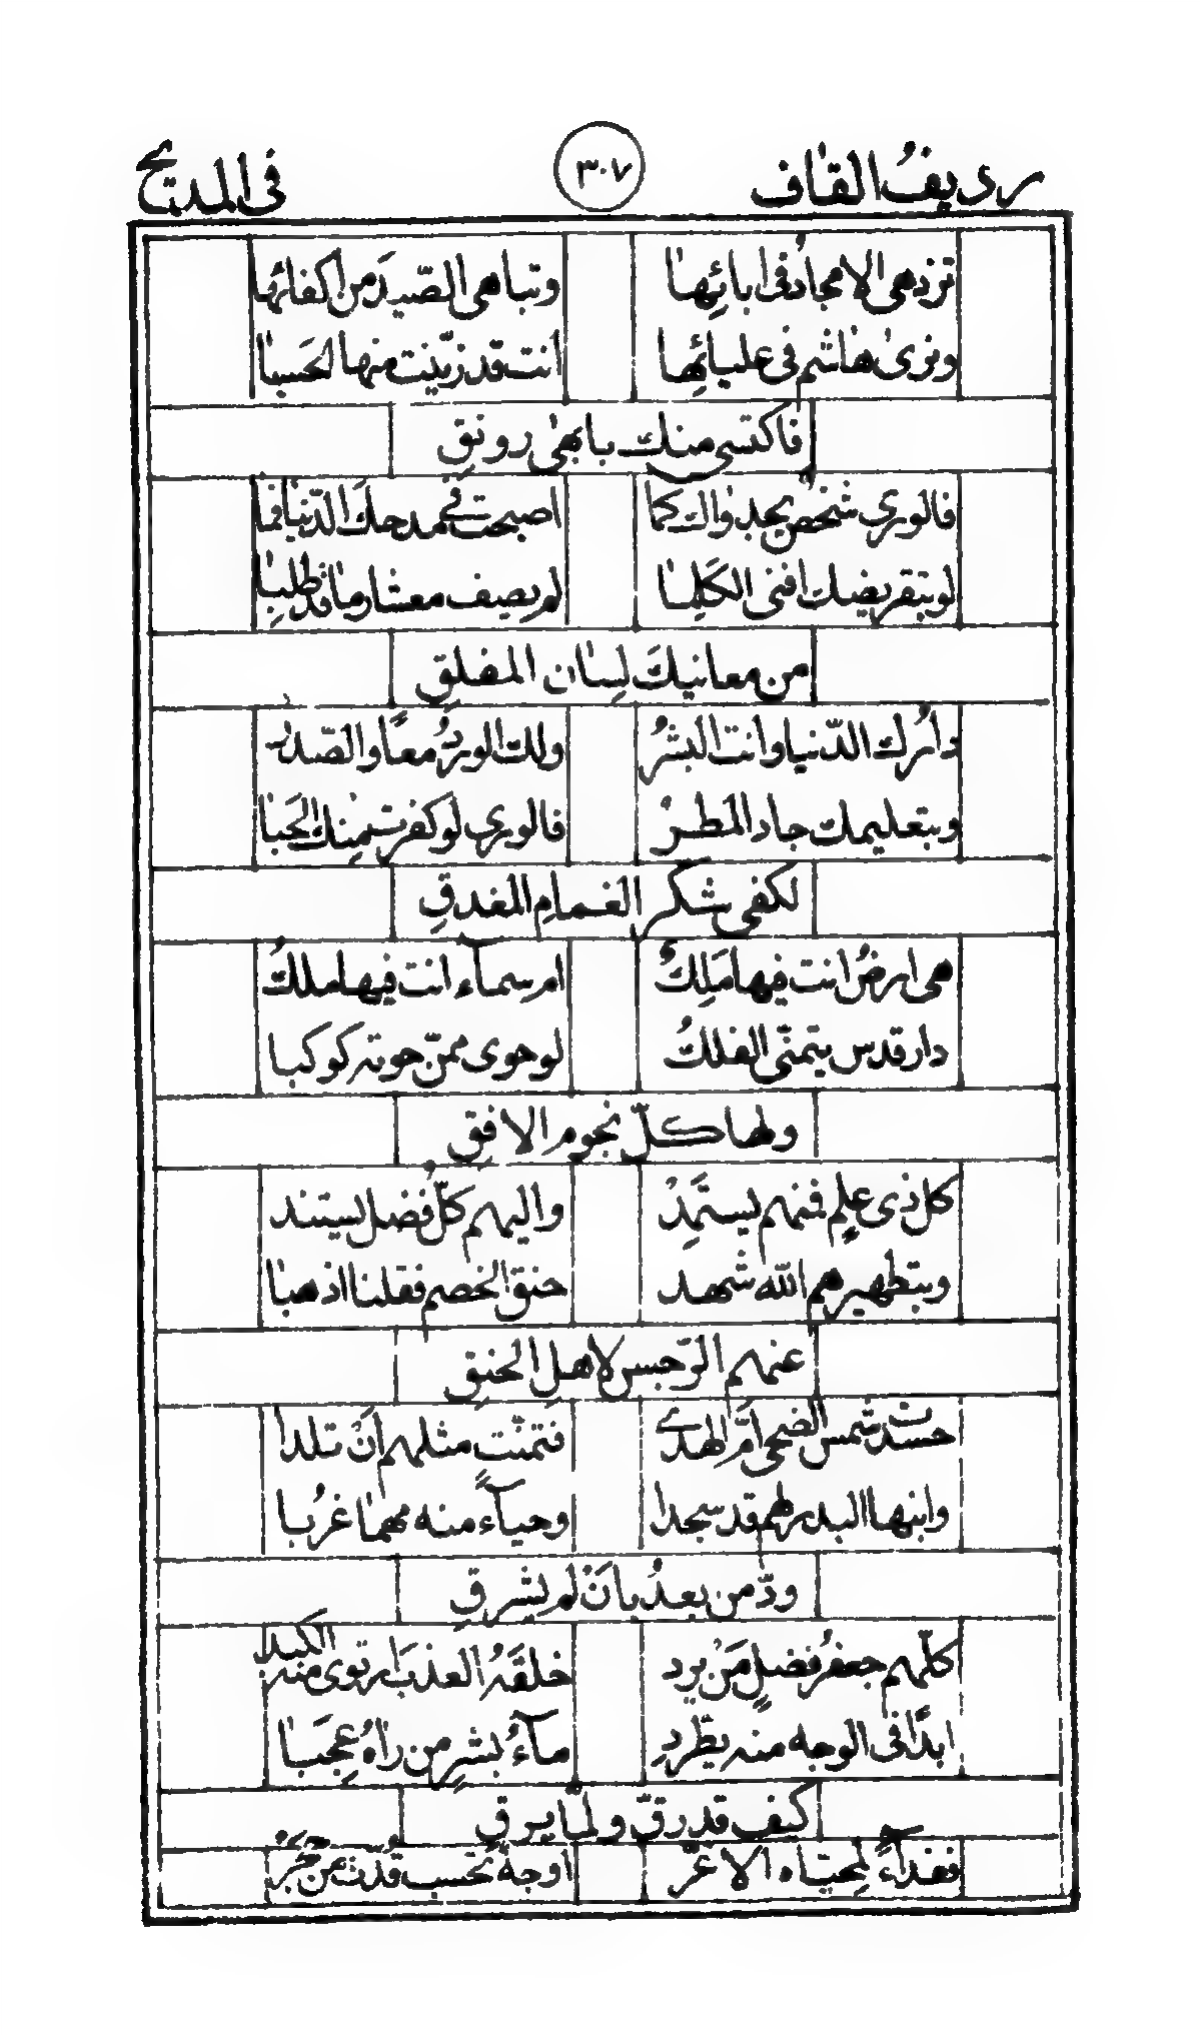 رديفُ القاف ٣٠٧ في المديح
تزدهي الامجادُ في ابائِها وتباهي الصّيدَ من اكفائها
ونرى هاشم في عليائِها انت قد زيّنت منها الحَسبا
فاكتسى منك بابهى رونقِ
فالورى شخصٌ بجدواك كما اصبحت في مدحك الدّنيا فما
لو بتقريضك افنى الكَلِما لم يصف معشار ما قد طلبا
من معانيكَ لِسان المفلقِ
دارُك الدّنيا وانت البشرُ ولك الوردُ معًا والصّدرُ
وبتعليمك جاد المطرُ فالورى لو كفرت منك الحَبا
لكفى شكر الغمامِ المغدقِ
هي ارضٌ انت فيها مَلِكٌ ام سمآء انت فيها ملكُ
دار قدس يتمنّى الفلكُ لو حوى ممّن حوته كوكبا
ولها كلّ نجوم الافقِ
كل ذي علمٍ فمنهم يستمِدُ واليهم كلّ فضل يستند
وبتطهيرهم الله شهد حنق الخصم فقلنا اذهبا
عنهم الرّجس لاهل الحنقِ
حسدت شمس الضحى امّ الهدى فتمنّت مثلهم أنْ تلدا
وابنها البدر لهم قد سجدا وحيآءً منه مهما غرُبا
ودّ من بعدُ بانْ لم يشرقِ
كلّهم جعفرُ فضلٍ مَنْ يرد خلقَهُ العذبَ ارتوى منه الكبد
ابدًا في الوجه منه يطّردِ مآءُ بشرٍ من راهُ عجِبا
كيف قد رقّ ولمّا يرقِ
ففدآءً لمحيّاه الاغرّ اوجهٌ تحسب قدّت من حَجَرْ